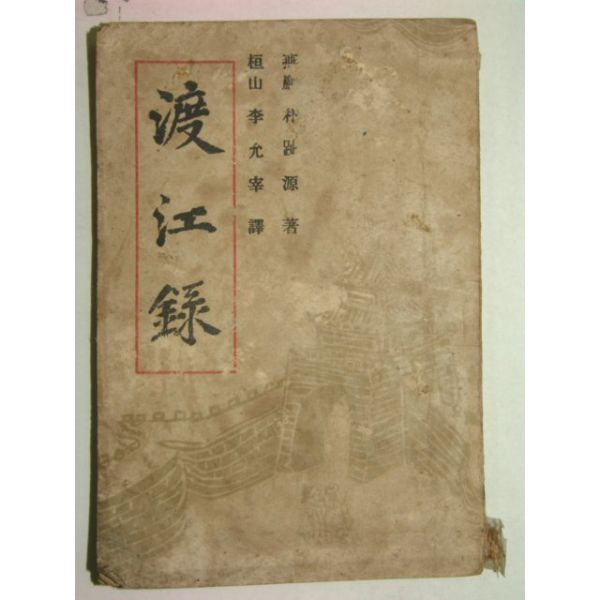 燕巖 朴趾源 著
桓山 李允宰 譯
渡江錄